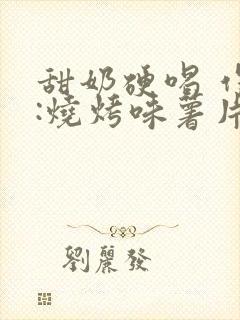 甜奶硬唱
:燒烤味薯片
劉麗發